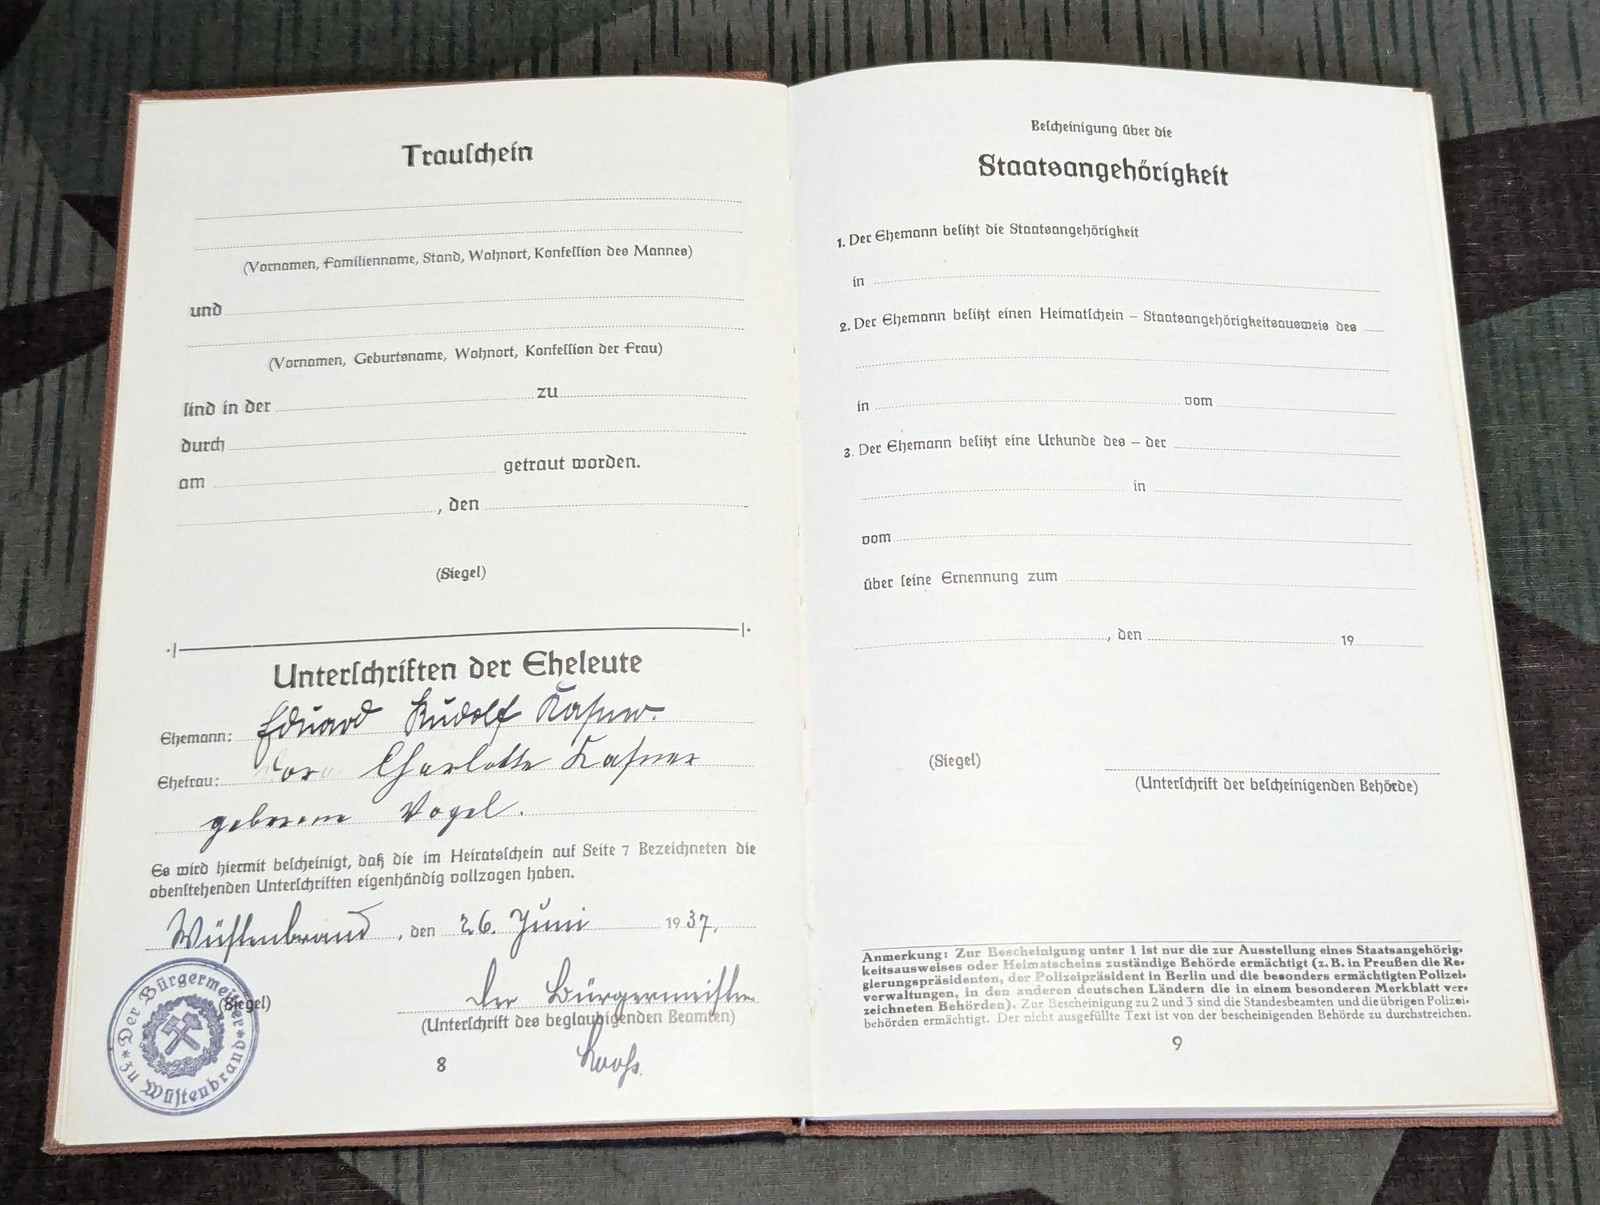 Trauschein
(Vornamen, Familienname, Stand, Wohnort, Konfession des Mannes)
und
(Vornamen, Geburtsname, Wohnort, Konfession der Frau)
sind in der zu
durch
am getraut worden.
, den
(Siegel)
Unterschriften der Eheleute
Ehemann: Eduard Rudolf Kasner.
Ehefrau: Charlotte Kasner
geborene Vogel.
Es wird hiermit bescheinigt, daß die im Heiratsschein auf Seite 7 Bezeichneten die
obenstehenden Unterschriften eigenhändig vollzogen haben.
Wüstenbrand, den 26. Juni 1937.
(Siegel)
Der Bürgermeister
(Unterschrift des beglaubigenden Beamten)
Der Bürgermeister
zu Wüstenbrand
8
Bescheinigung über die
Staatsangehörigkeit
1. Der Ehemann besitzt die Staatsangehörigkeit
in
2. Der Ehemann besitzt einen Heimatschein – Staatsangehörigkeitsausweis des
in vom
3. Der Ehemann besitzt eine Urkunde des – der
in
vom
über seine Ernennung zum
, den 19
(Siegel)
(Unterschrift der bescheinigenden Behörde)
Anmerkung: Zur Bescheinigung unter 1 ist nur die zur Ausstellung eines Staatsangehörig-
keitsausweises oder Heimatscheins zuständige Behörde ermächtigt (z. B. in Preußen die Re-
gierungspräsidenten, der Polizeipräsident in Berlin und die besonders ermächtigten Polizei-
verwaltungen, in den anderen deutschen Ländern die in einem besonderen Merkblatt ver-
zeichneten Behörden). Zur Bescheinigung zu 2 und 3 sind die Standesbeamten und die übrigen Polizei-
behörden ermächtigt. Der nicht ausgefüllte Text ist von der bescheinigenden Behörde zu durchstreichen.
9